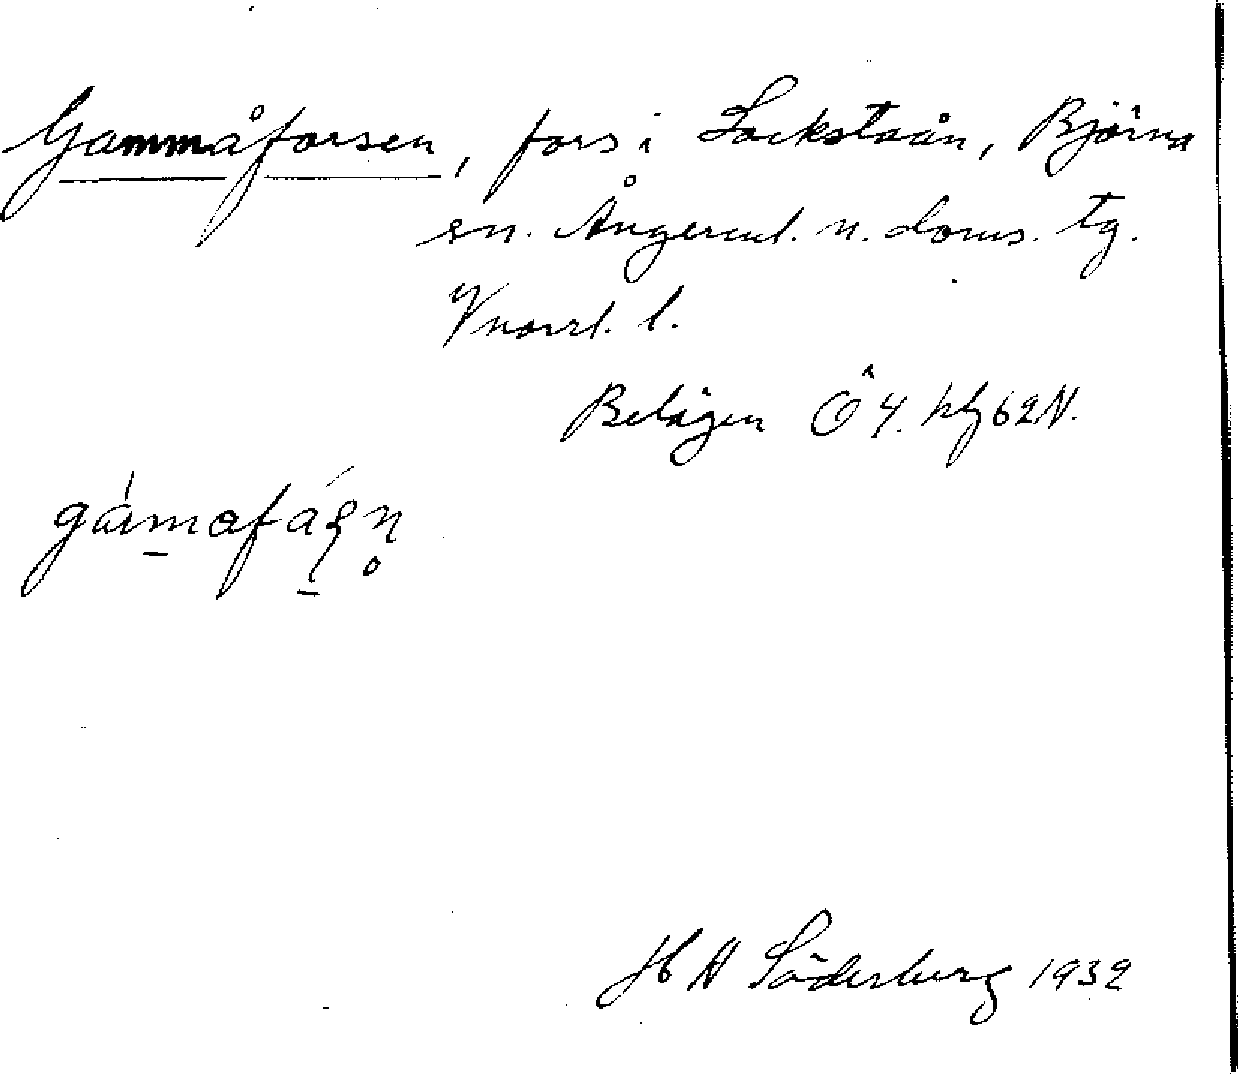 Gammåforsen, fors i Lockstaån, Björna
sn. Ångerml. n. doms. tg.
Vnorrl. l.
Belägen Ö 4. hg 62 N.
H A Söderberg 1932